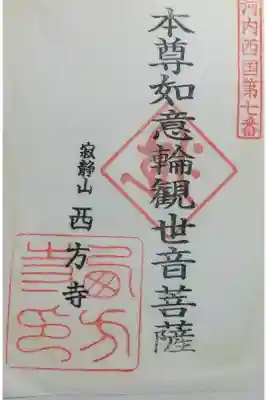 河内西国第七番
本尊如意輪観世音菩薩
寂静山 西方寺
西方寺印